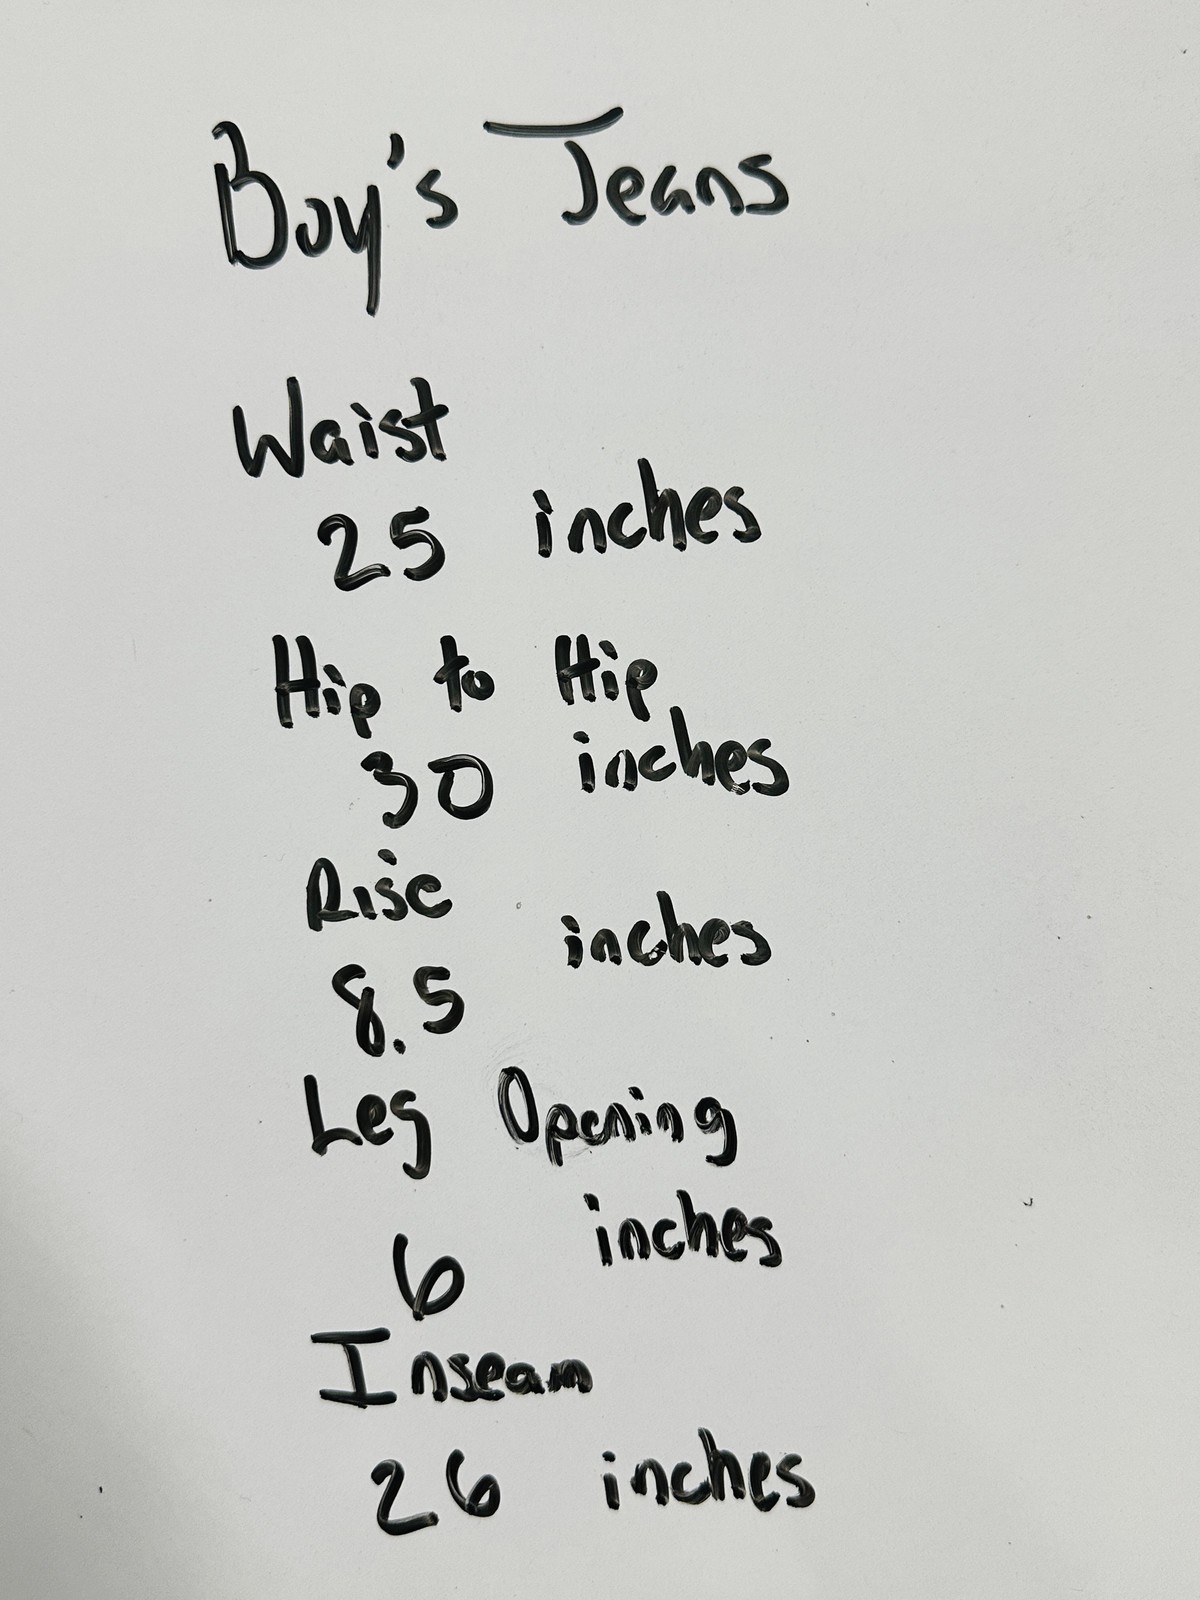 Boy's Jeans
Waist
25 inches
Hip to Hip
30 inches
Rise
8.5 inches
Leg Opening
6 inches
Inseam
26 inches